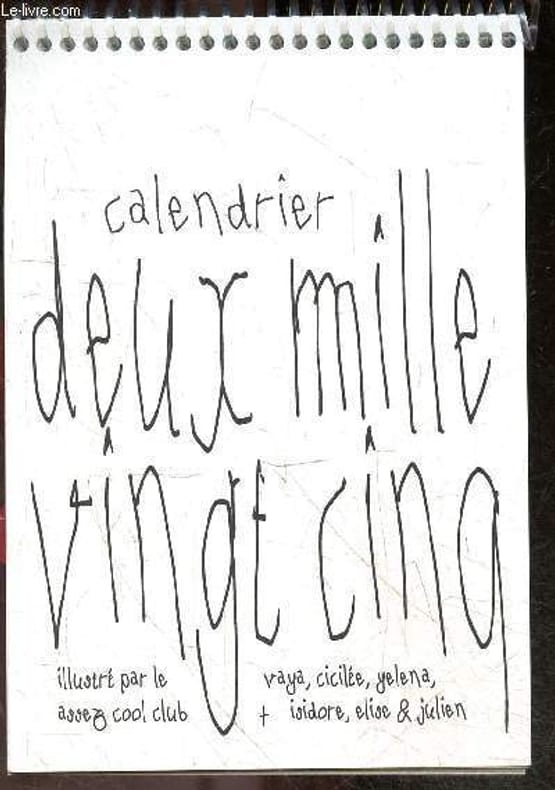 Le-livre.com
calendrier
deux mille
vingt cinq
illustré par le
assez cool club
vaya, cicilée, yelena,
+ isidore, elise & julien